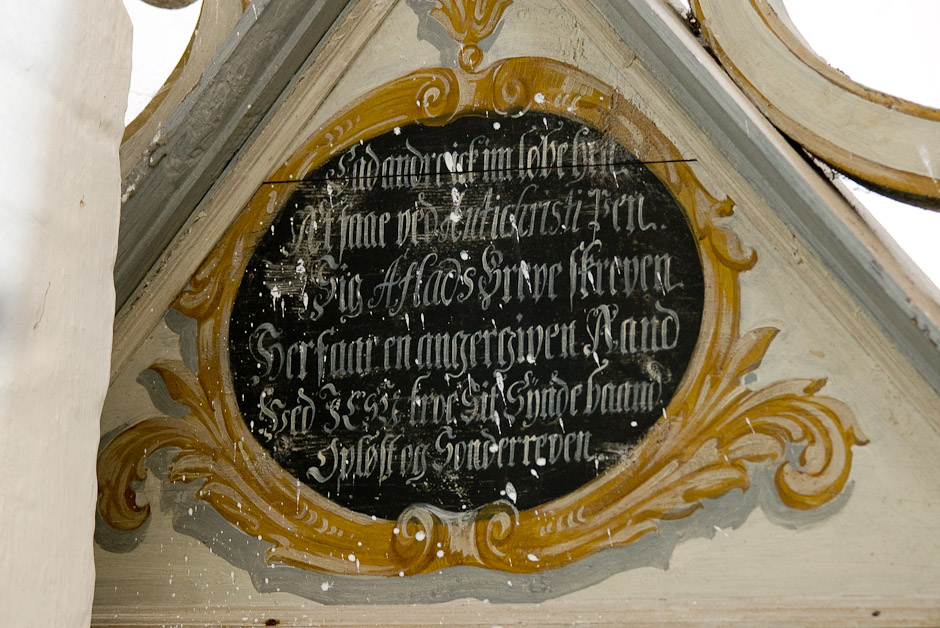 Lad andre ick im løbe hen
At faae ved Antichristi Pen.
Sig Aflads Breve skreven
Her faar en angergiven Aand
Ved JESU broe Sit Synde baand
Opløst og Sonderreven.